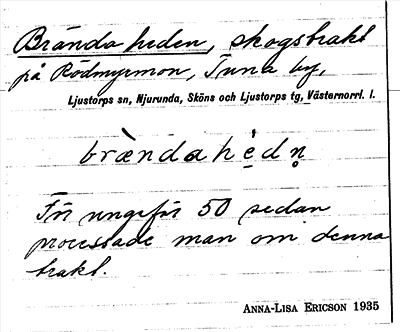 Brända heden, skogstrakt
på Rödmyrmon, Tuna by,
Ljustorps sn, Njurunda, Sköns och Ljustorps tg, Västernorrl. l.
brændahèdn̥
För ungefär 50 sedan
processade man om denna
trakt.
ANNA-LISA ERICSON 1935